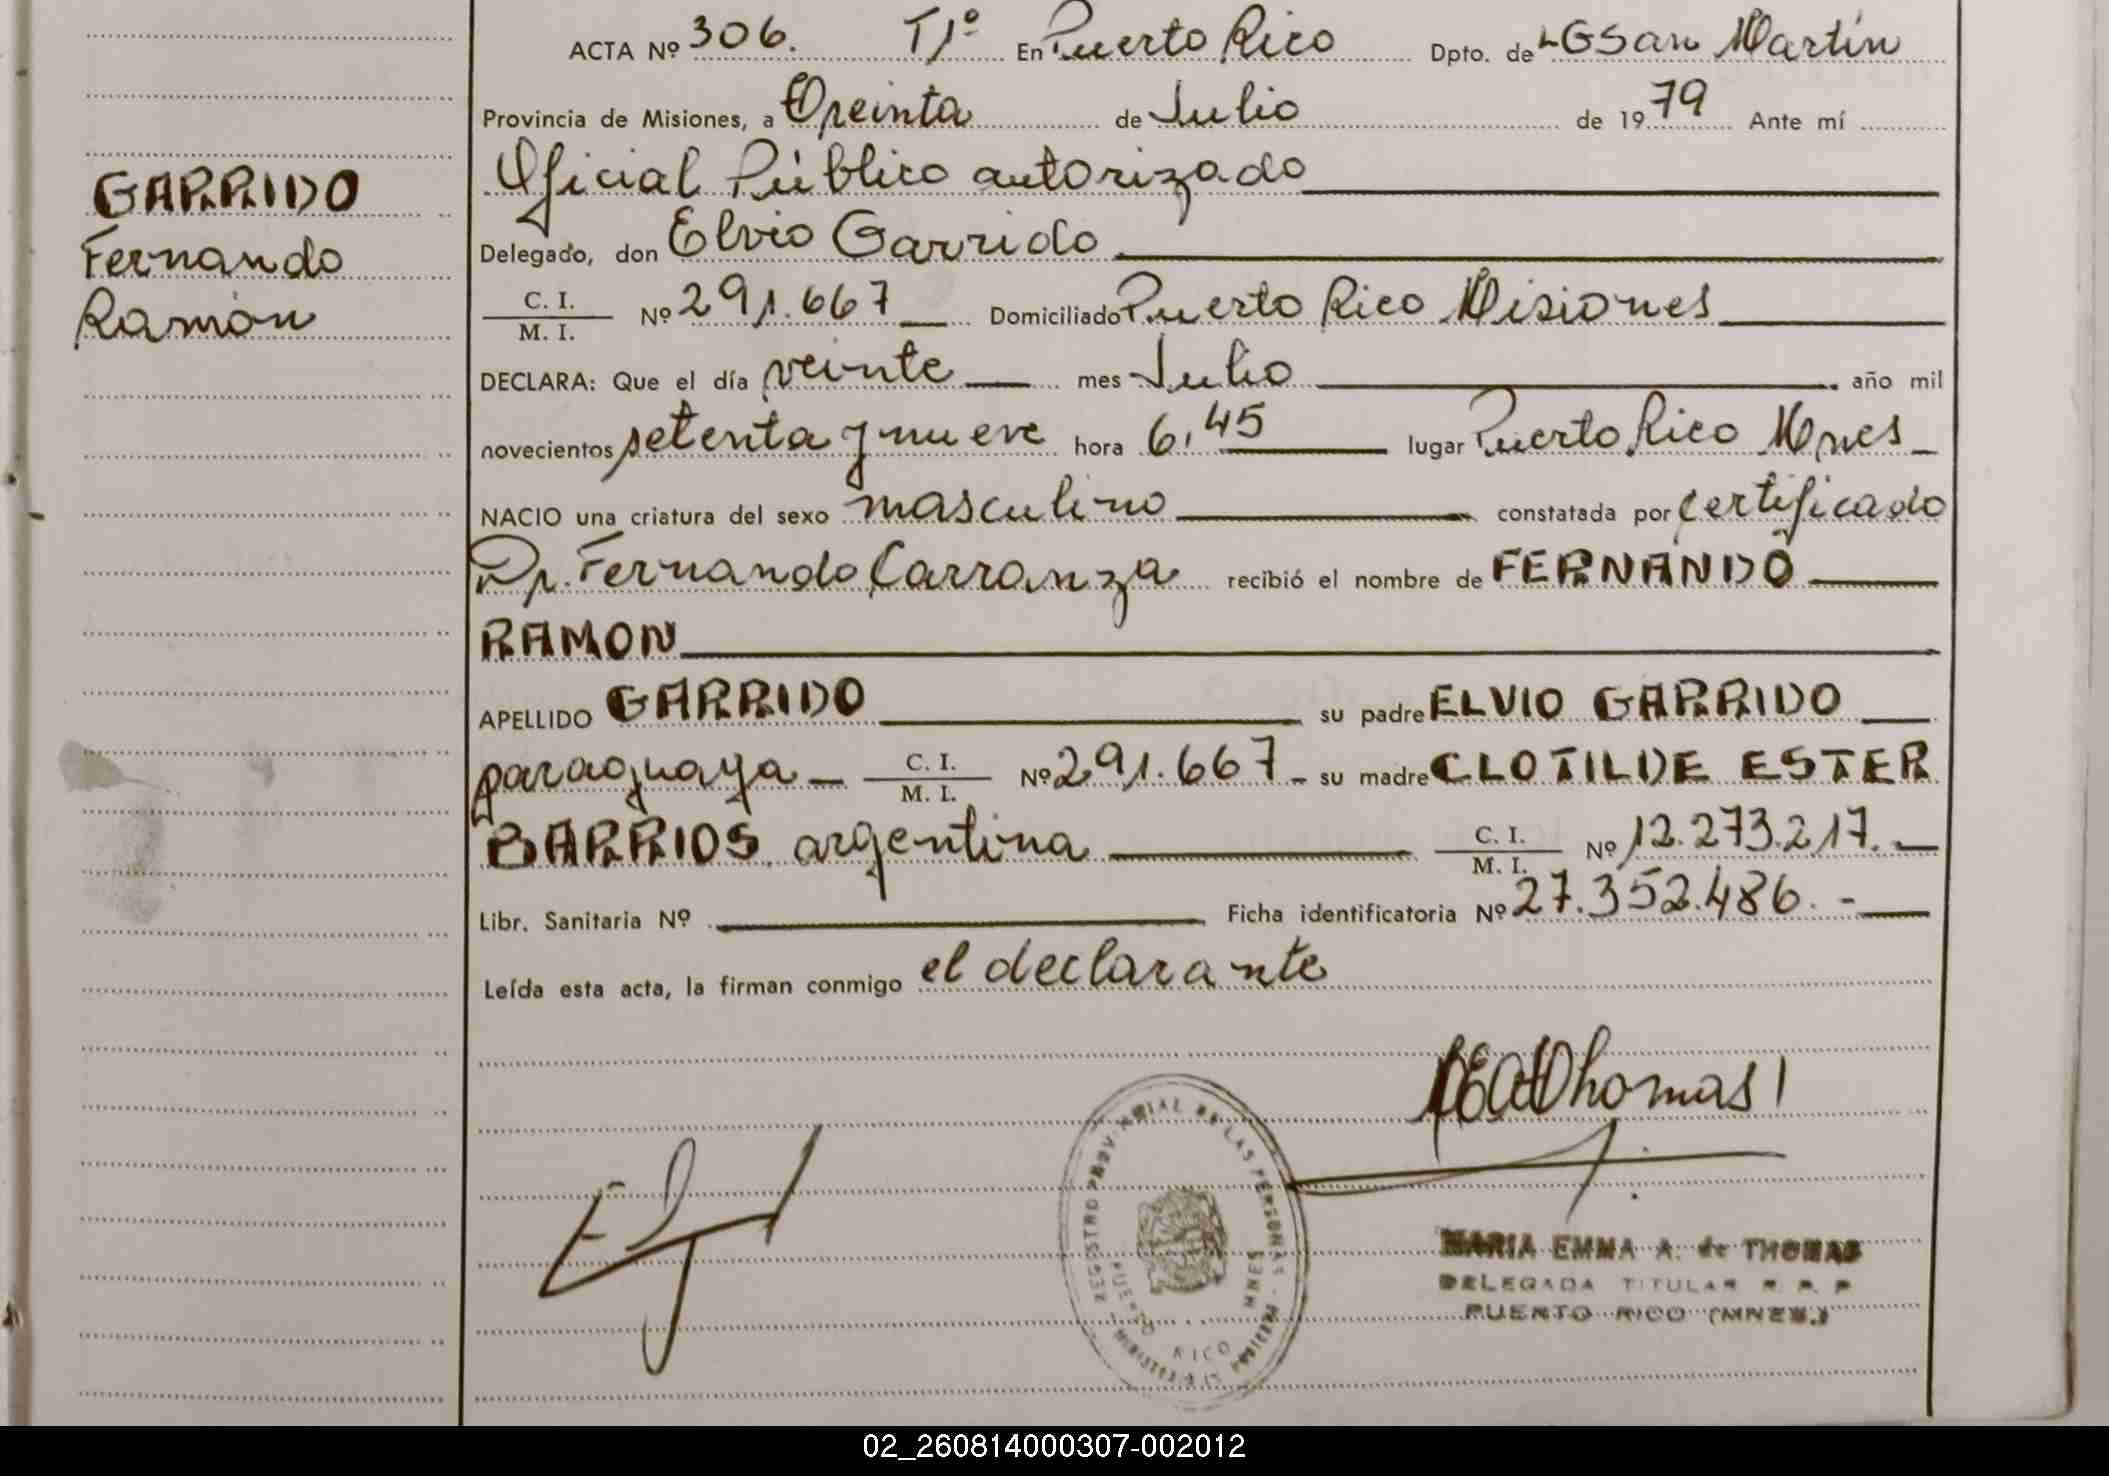 ACTA Nº 306. Tº 1º En Puerto Rico Dpto. de LGSan Martín
Provincia de Misiones, a Treinta de Julio de 1979 Ante mí
Oficial Público autorizado
GARRIDO
Fernando
Ramón
Delegado, don Elvio Garrido
C. I.
M. I.
Nº 291.667 Domiciliado Puerto Rico Misiones
DECLARA: Que el día veinte mes Julio año mil
novecientos setenta y nueve hora 6,45 lugar Puerto Rico Mnes
NACIO una criatura del sexo masculino constatada por certificado
Dr. Fernando Carranza recibió el nombre de FERNANDO
RAMON
APELLIDO GARRIDO su padre ELVIO GARRIDO
paraguaya C. I.
M. I.
Nº 291.667 su madre CLOTILDE ESTER
BARRIOS argentina C. I.
M. I.
Nº 12.273.217.
Libr. Sanitaria Nº Ficha identificatoria Nº 27.352.486.-
Leída esta acta, la firman conmigo el declarante
Thomas
REGISTRO PROVINCIAL DE LAS PERSONAS
PUERTO RICO MNES
MARIA EMMA A. de THOMAS
DELEGADA TITULAR R. P. P
PUERTO RICO (MNES.)
02_260814000307-002012